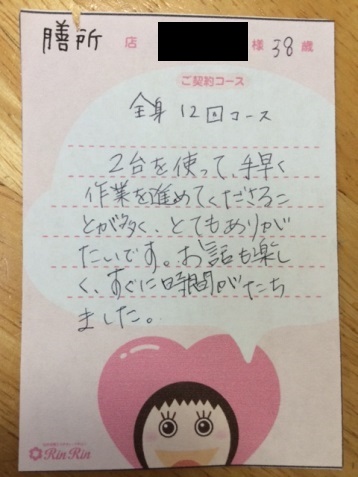 膳所 店 様 38 歳
ご契約コース
全身 12回 コース
2台を使って、手早く
作業を進めてくださるこ
とが多く、とてもありが
たいです。お話も楽し
く、すぐに時間がたち
ました。
RinRin